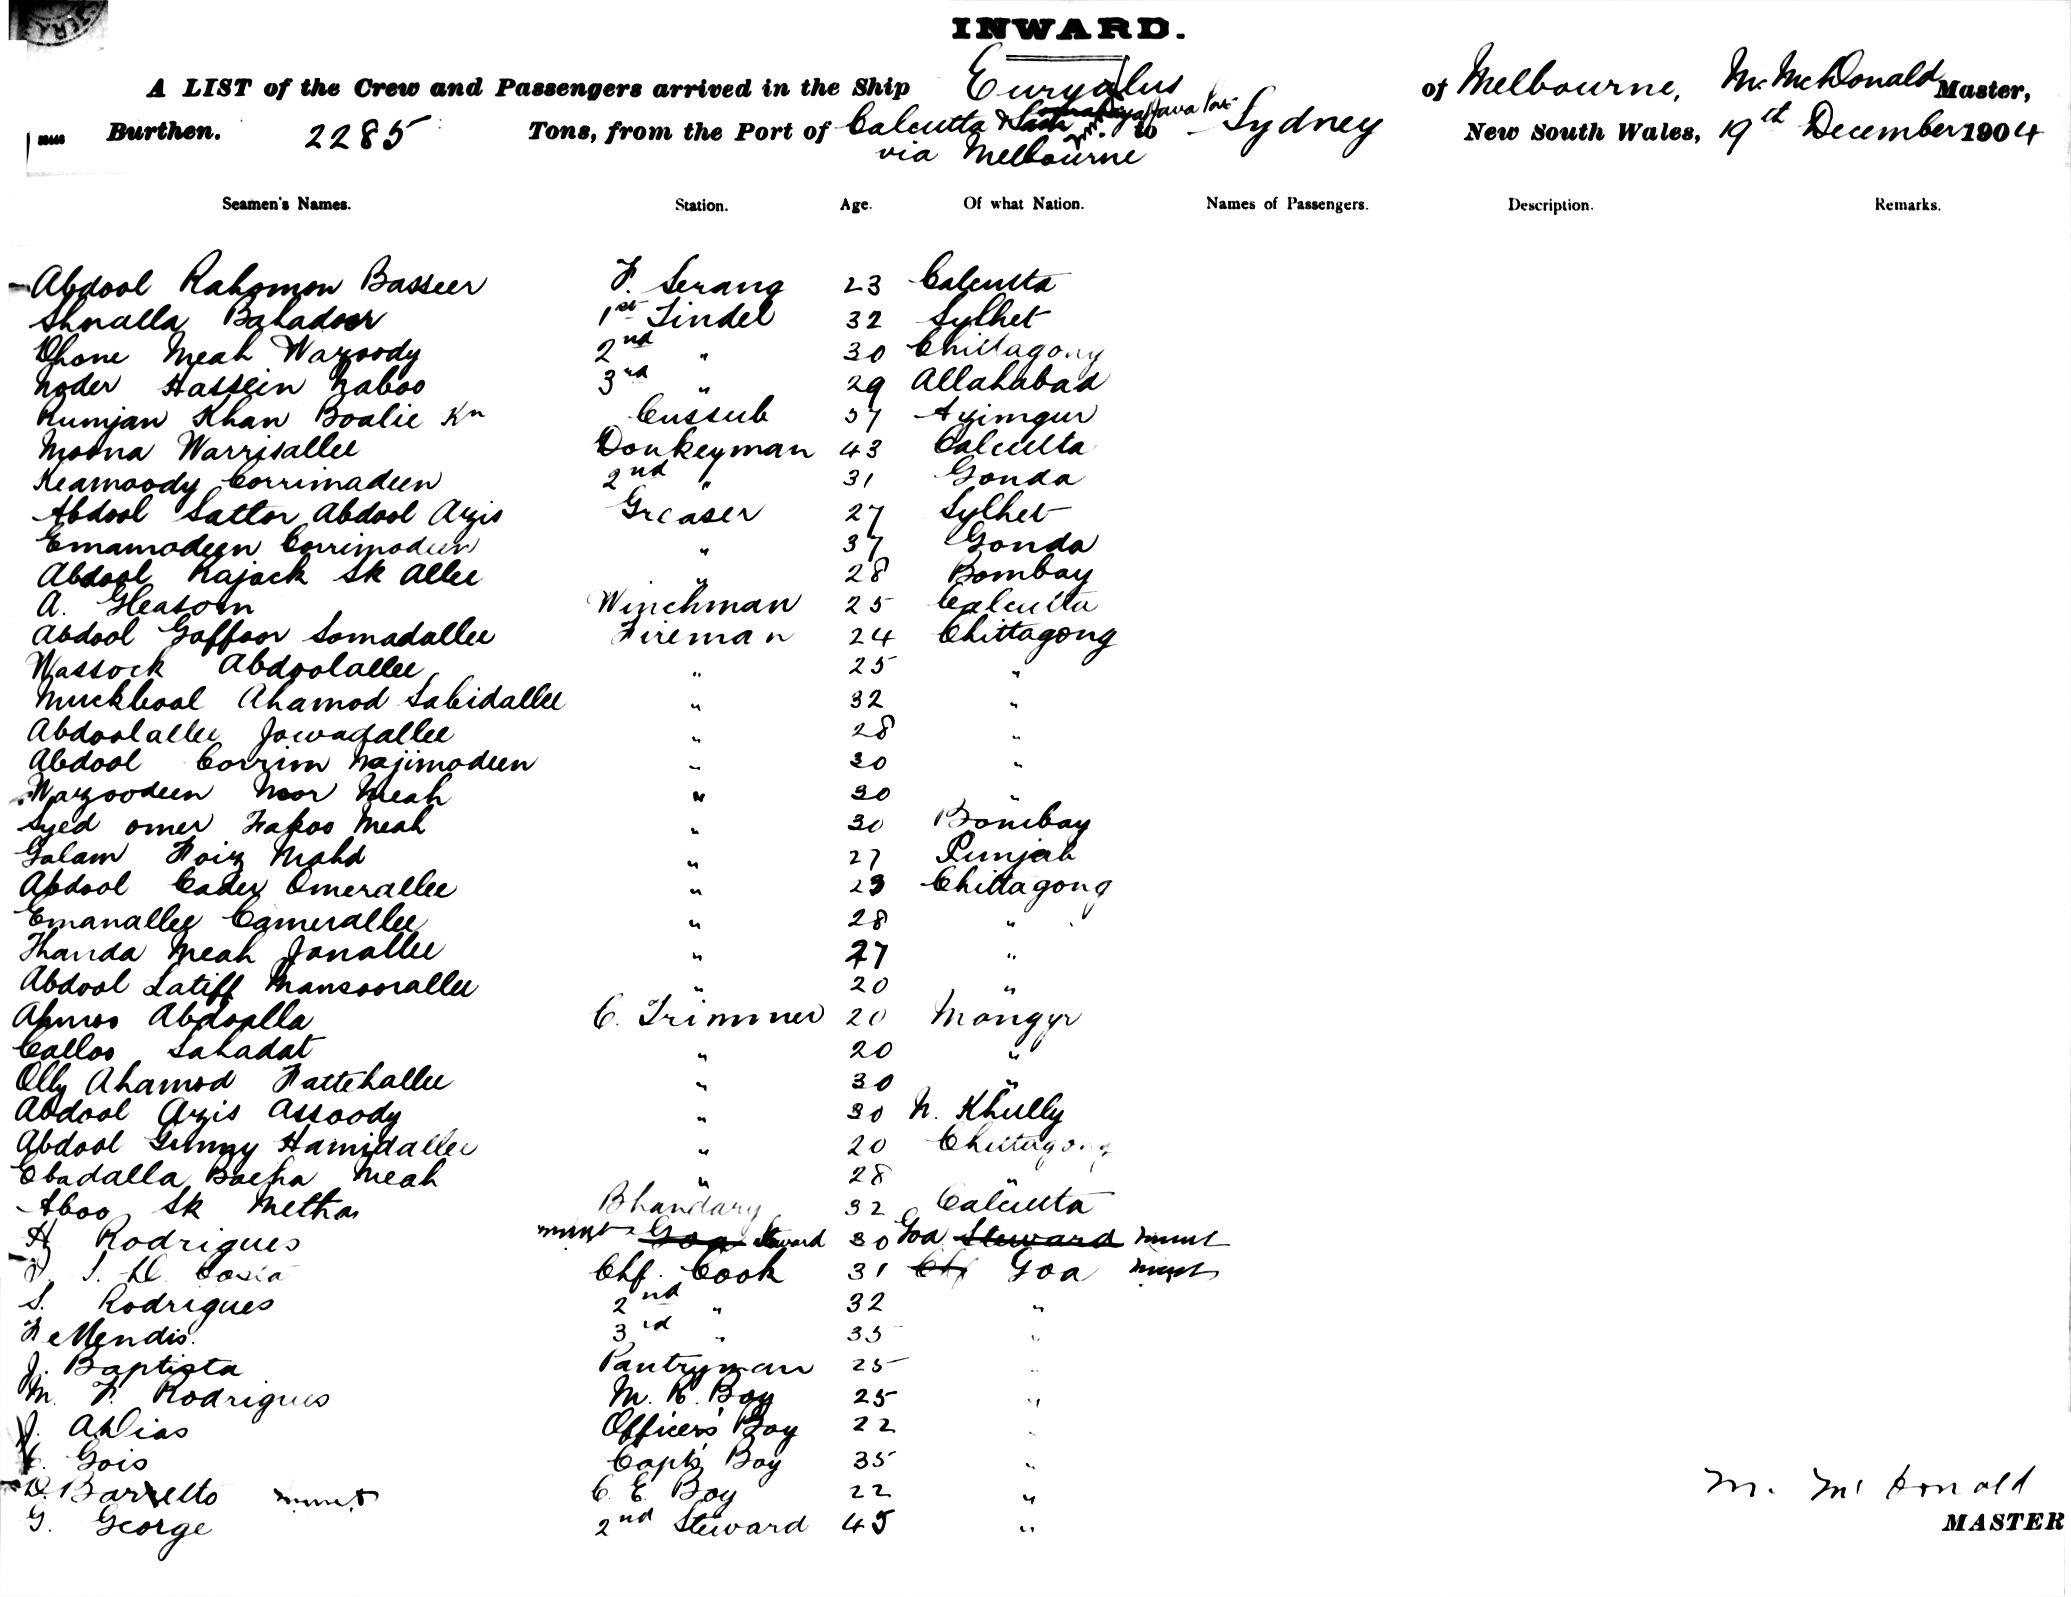 INWARD.
A LIST of the Crew and Passengers arrived in the Ship Euryalus of Melbourne, M. McDonald Master,
Burthen. 2285 Tons, from the Port of Calcutta & to Sydney New South Wales, 19th December 1904
via Melbourne
Seamen's Names. Station. Age. Of what Nation. Names of Passengers. Description. Remarks.
Abdool Rahomon Basseer F. Serang 23 Calcutta
Shnalla Bahadoor 1st Tindel 32 Sylhet
Dhone Meah Wazoody 2nd " 30 Chittagong
Noder Hassein Naboo 3rd " 29 Allahabad
Rumjan Khan Boalie Kn Cussub 37 Azimgur
Moona Warrisallee Donkeyman 43 Calcutta
Keamoody Corrimadeen 2nd " 31 Gonda
Abdool Sattor Abdool Azis Greaser 27 Sylhet
Emamodeen Corrimodeen " 37 Gonda
Abdool Rajack Sk Allee " 28 Bombay
A. Gleasom Winchman 25 Calcutta
Abdool Goffoor Somadallee Fireman 24 Chittagong
Wassock Abdoolallee " 25 "
Muckbool Ahamod Sabidallee " 32 "
Abdoolallee Jowadallee " 28 "
Abdool Corrim Najimodeen " 30 "
Wazoodeen Noor Meah " 30 "
Syed omer Fakoo Meah " 30 Bombay
Golam Foiz Mohd " 27 Punjab
Abdool Cader Omerallee " 23 Chittagong
Emanallee Camerallee " 28 "
Thanda Meah Jonallee " 27 "
Abdool Latiff Mansoorallee " 20 "
Ahmoo Abdoolla C. Trimmer 20 Mongyr
Calloo Sahadat " 20 "
Olly Ahamod Fattehallee " 30 "
Abdool Azis Assoody " 30 N. Khully
Abdool Gunny Hamidallee " 20 Chittagong
Ebadalla Bacha Meah " 28 "
Aboo Sk Metha Bhandary 32 Calcutta
H Rodrigues Goa Steward 30 Goa Steward
D. Costa Chf. Cook 31 Goa
S. Rodrigues 2nd " 32 "
F. Mendis. 3rd " 35 "
J. Baptista Pantryman 25 "
M. F. Rodrigues M. R. Boy 25 "
J. A Dias Officers' Boy 22 "
C. Gois Capt's Boy 35 "
D. Barretto C. E. Boy 22 "
G. George 2nd Steward 45 "
M. McDonald
MASTER